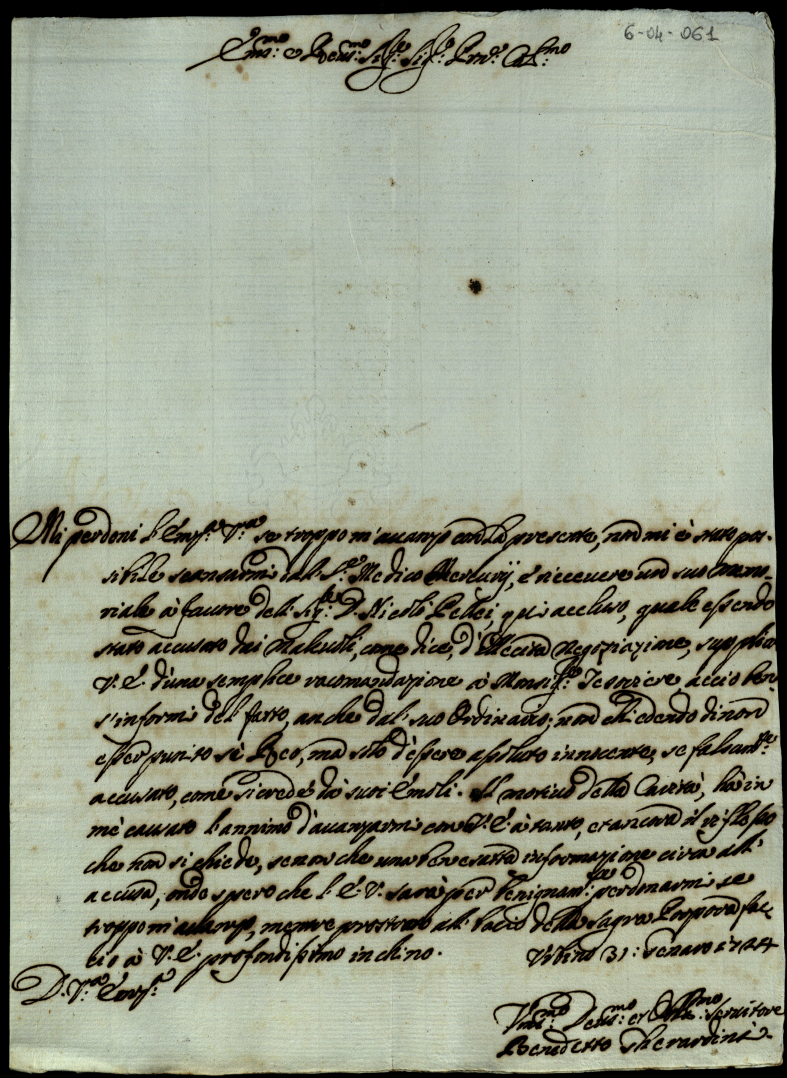 6-04-061
Em.mo e Reu.mo Sig.re Sig.re P.rone Col.mo
Mi perdoni l'Em.za V.ra se troppo m'auanzo con la presente, non mi è stato pos-
sibile scansarmi dal S.r Medico Mercurij, è riceuere un suo memo-
riale à fauore del Sig.re D. Nicolò Pellei, qui accluso, quale essendo
stato accusato dai maleuoli, come dice, d'illecita negoziazione, supplica
V.E. d'una semplice racomandazione à Monsig.re Tesoriere, acciò ben
s'informi del fatto, anche dal suo Ordinario; non chiedendo di non
esser punito sè Reo, mà solo d'essere assoluto innocente, se falsam.te
accusato, come si crede dà suoi Emoli. Il motiuo della Carità, hà in
mè causato l'annimo d'auanzarmi con V.E. à tanto, et ancora il riflesso
che non si chiede, se non che una ben esatta informazione circa all'
accusa; onde spero che l'E.V. sarà per benignam.te perdonarmi se
troppo m'auanzo, mentre prostrato al bacio della Sagra Porpora fac-
cio à V.E. profondissimo inchino. Vrbino 31: Genaro 1724
D. V.ra Em.za
Vm.mo Deu.mo et Obl.mo Seruitore
Benedetto Gherardini